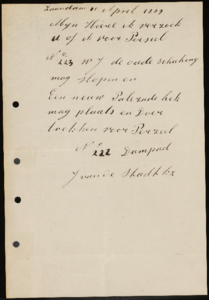 Zaandam 11 April 1889
Mijn Heere ik verzoek
u of ik voor Perzeel
No 223 W J de oude schuting
mag Slopen en
Een nieuw Palezade hek
mag plaats en Door
trekken voor Perzeel
No 222 Dampad